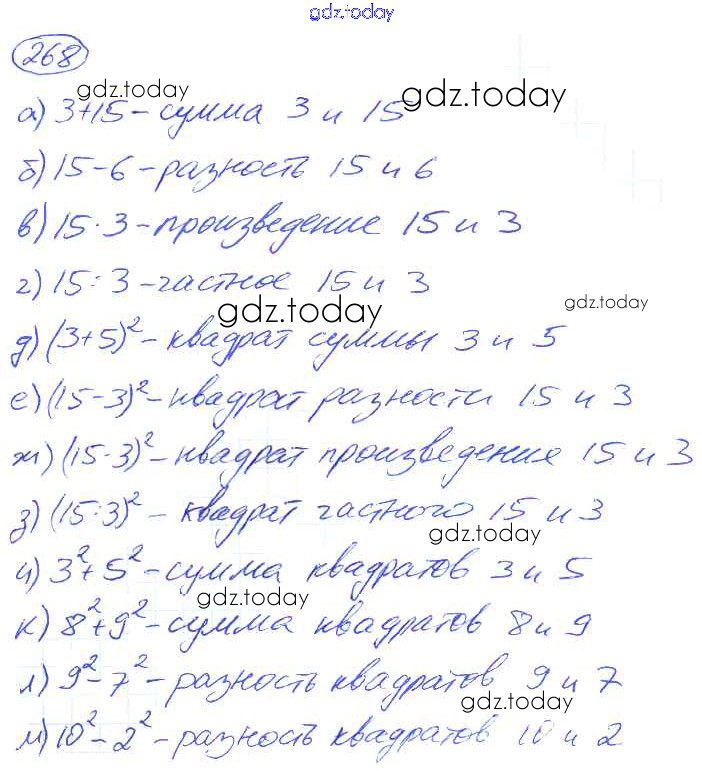 gdz.today
268
gdz.today
gdz.today
а) 3+15 – сумма 3 и 15
б) 15-6 – разность 15 и 6
в) 15·3 – произведение 15 и 3
г) 15:3 – частное 15 и 3
gdz.today
gdz.today
д) (3+5)² – квадрат суммы 3 и 5
е) (15-3)² – квадрат разности 15 и 3
ж) (15·3)² – квадрат произведения 15 и 3
з) (15:3)² – квадрат частного 15 и 3
gdz.today
и) 3²+5² – сумма квадратов 3 и 5
gdz.today
к) 8²+9² – сумма квадратов 8 и 9
л) 9²-7² – разность квадратов 9 и 7
gdz.today
м) 10²-2² – разность квадратов 10 и 2